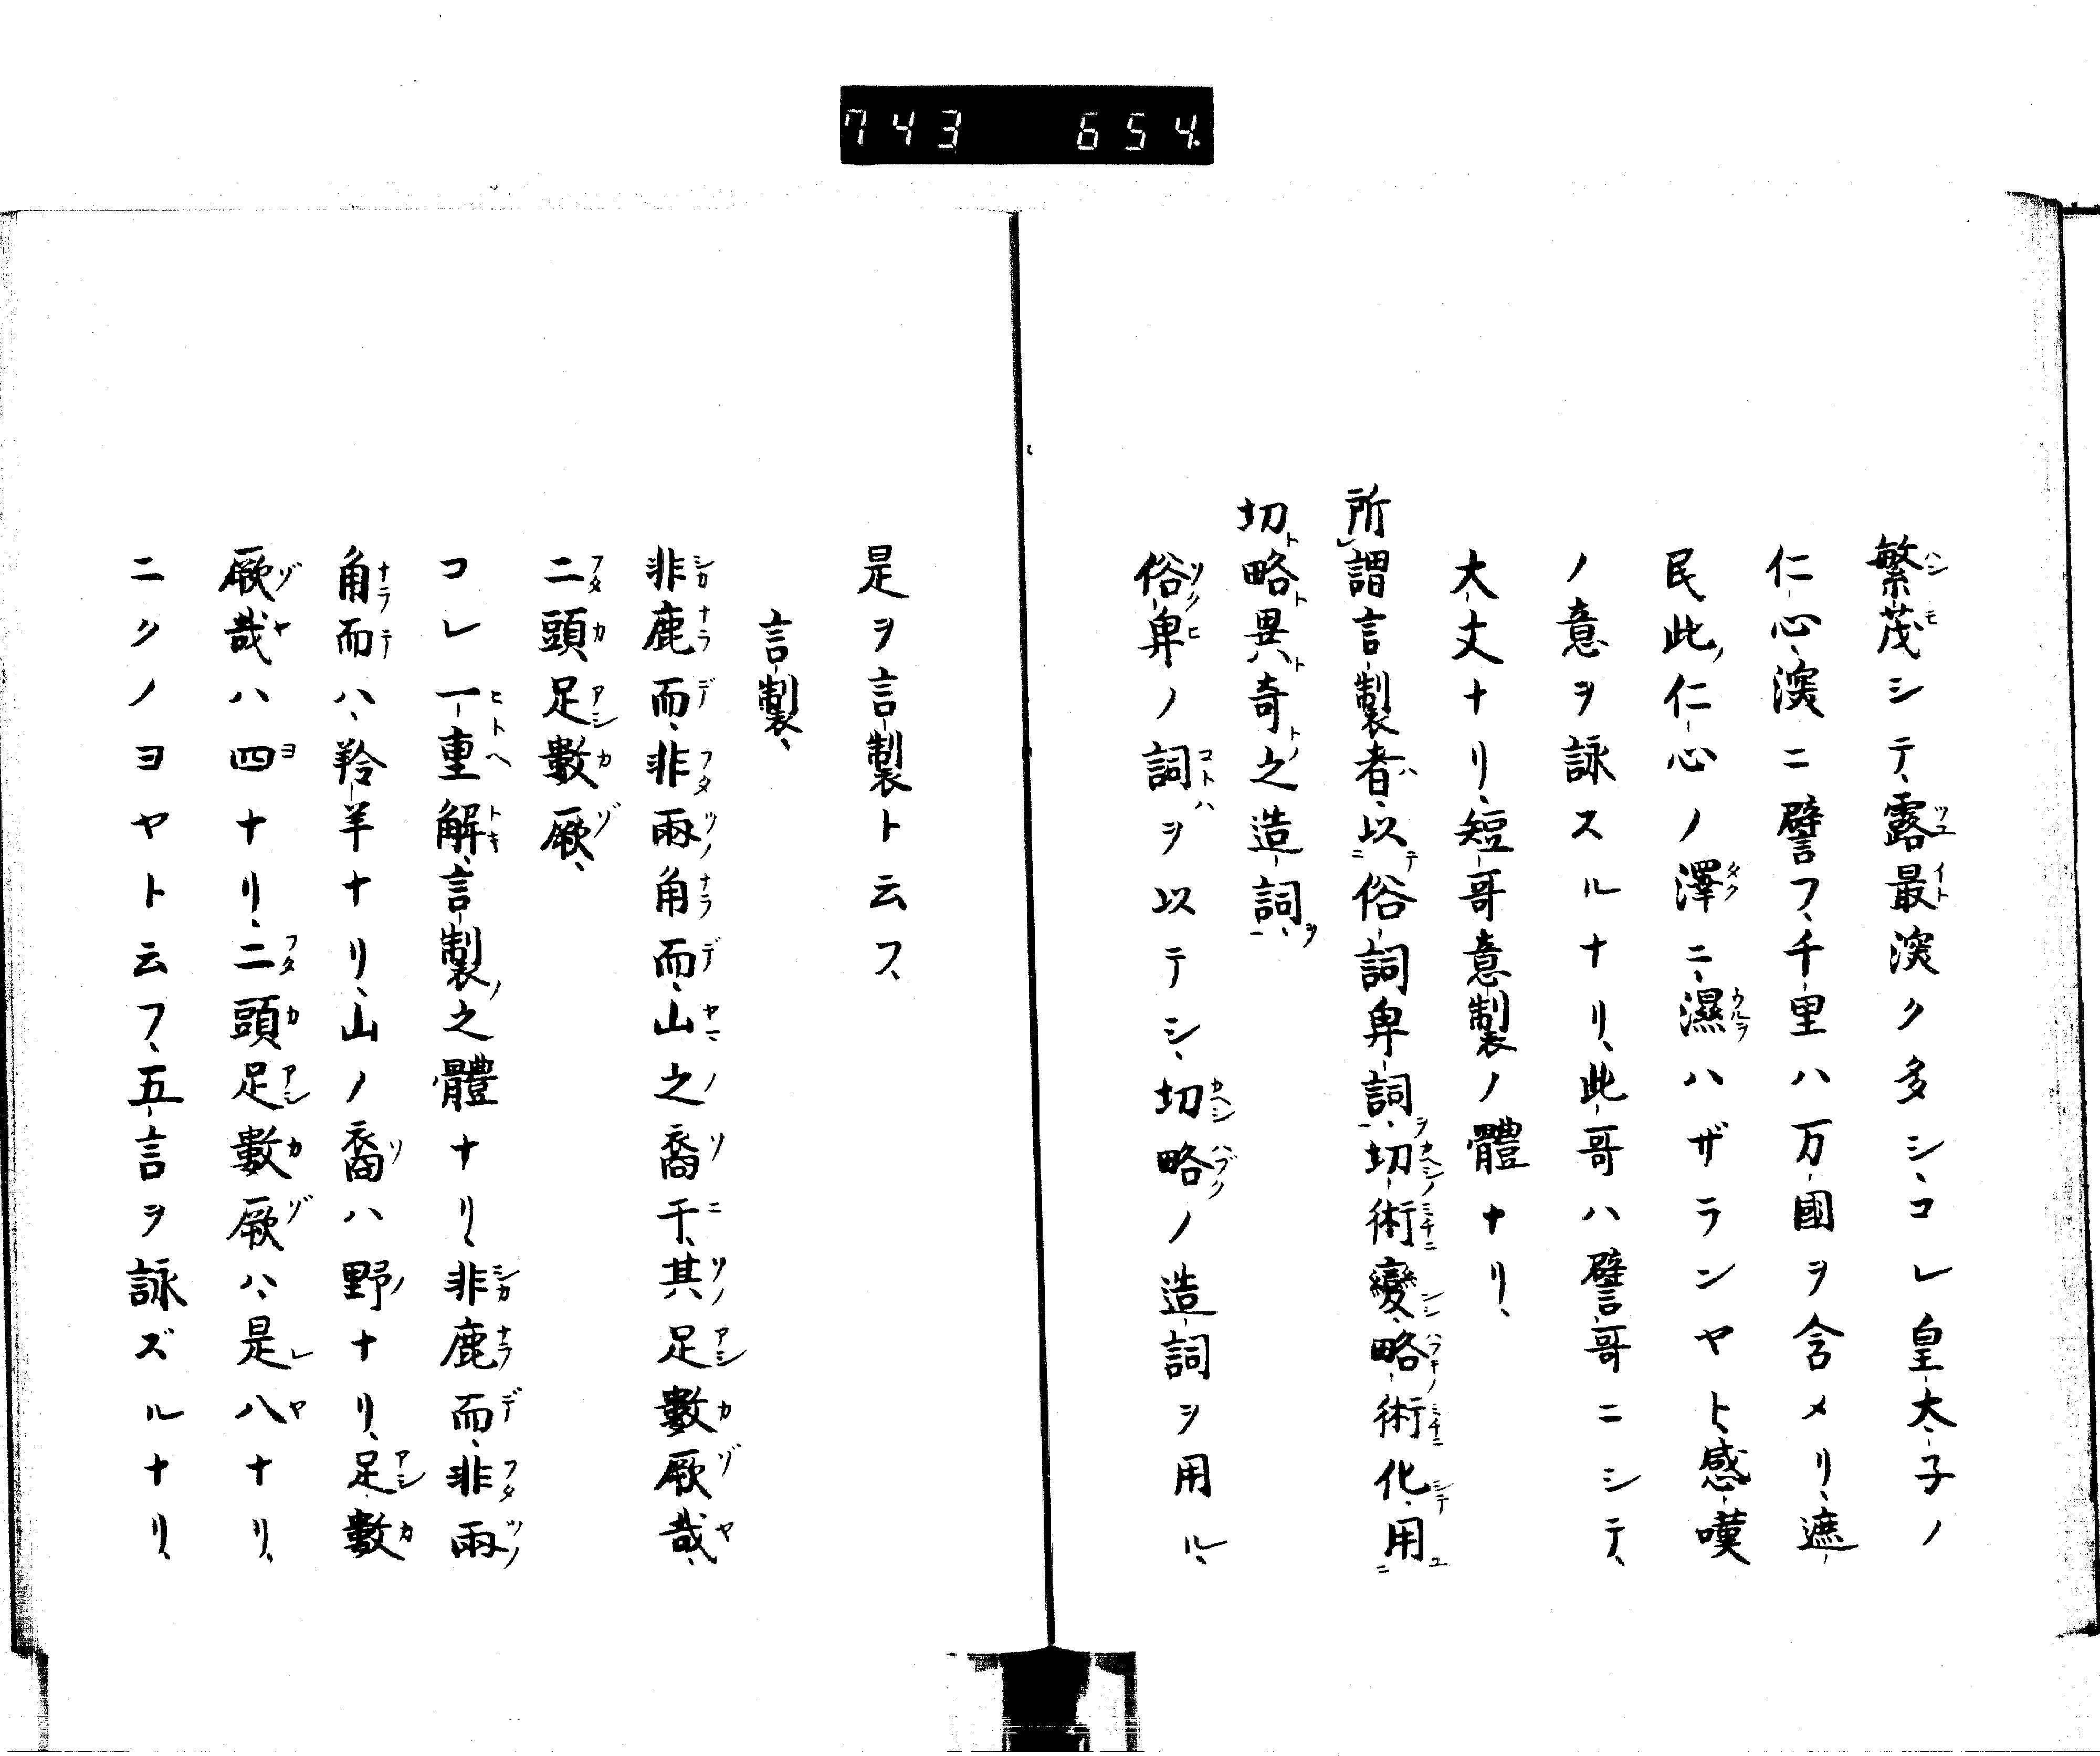 743 654
繁茂シテ、露最深ク多シ、コレ皇太子ノ
仁心深ニ譬フ、千里ハ万國ヲ含メリ、遮
民此ノ仁心ノ澤ニ、濕ハザランヤト、感嘆
ノ意ヲ詠スルナリ、此哥ハ譬哥ニシテ、
大丈ナリ、短哥意製ノ體ナリ、
所謂言製者、以俗詞卑詞、切術變、略術化、用
切略異奇之造詞、
俗卑ノ詞ヲ以テシ、切略ノ造詞ヲ用ル、
是ヲ言製ト云フ、
言製、
非鹿而、非兩角而、山之裔于、其足數厥哉、
二頭足數厥、
コレ一重解、言製之體ナリ、非鹿而、非兩
角而ハ、羚羊ナリ、山ノ裔ハ野ナリ、足數
厥哉ハ四ナリ、二頭足數厥ハ、是八ナリ、
ニクノヨヤト云フ、五言ヲ詠ズルナリ、